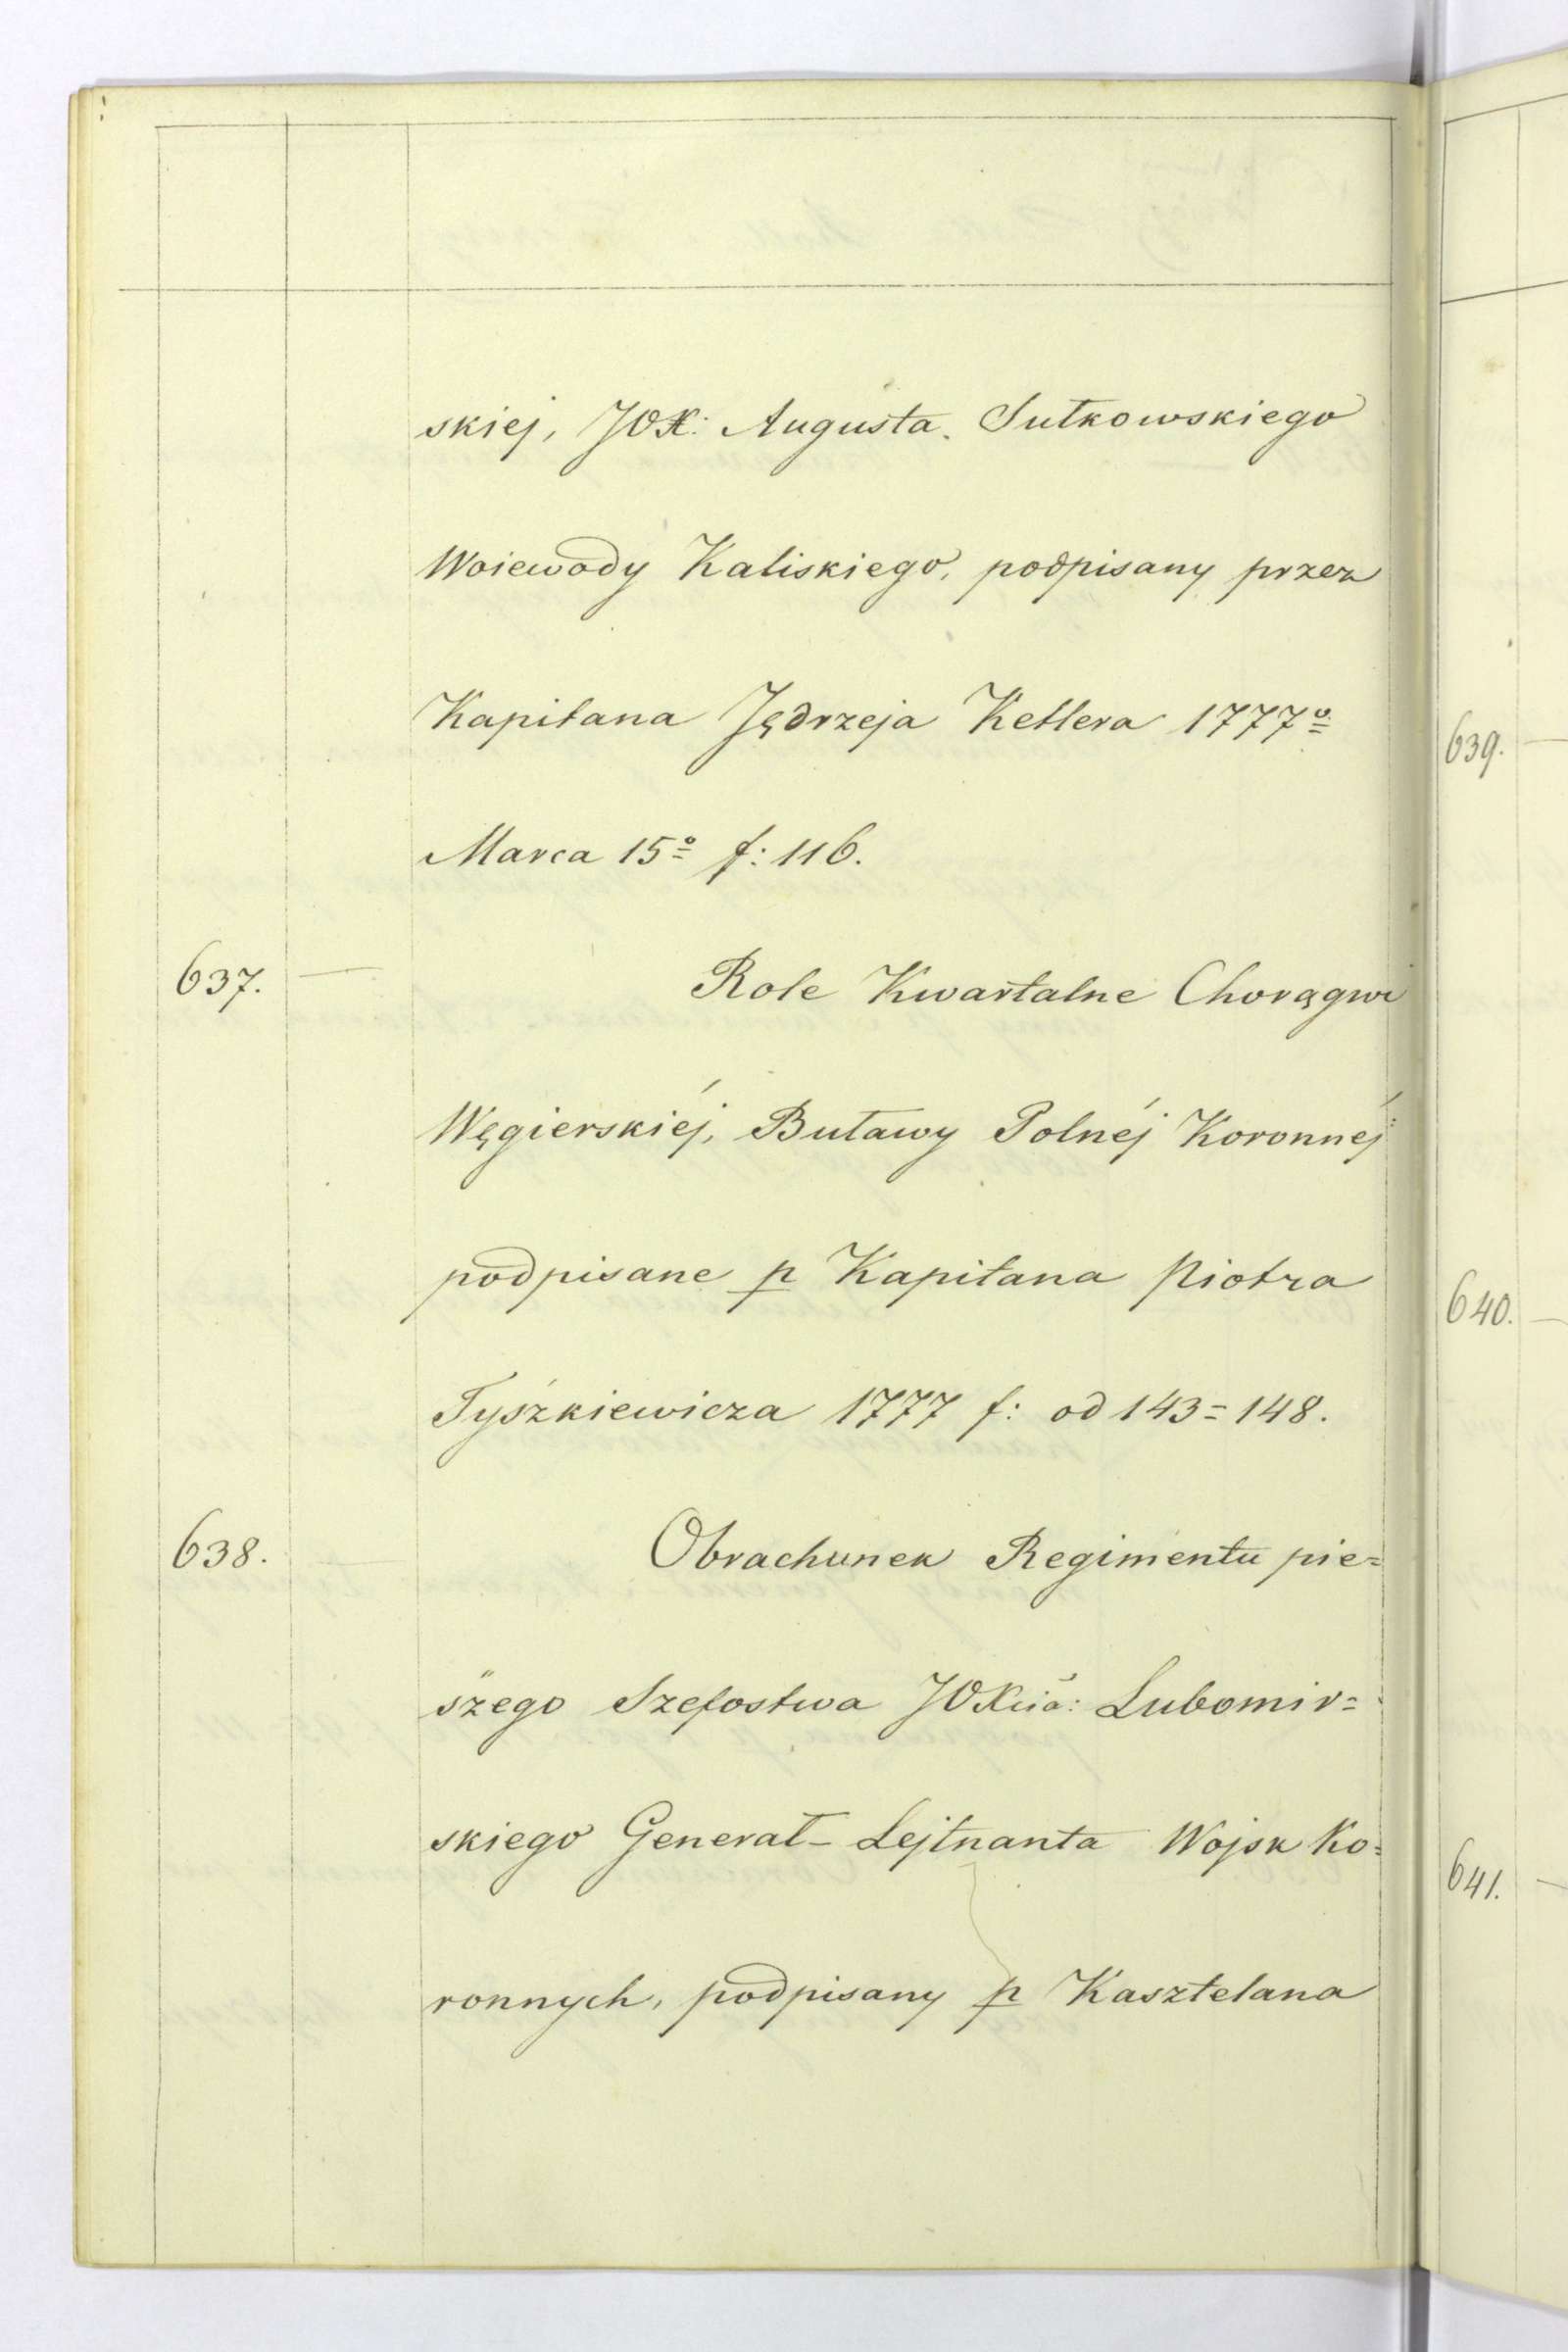 skiej, JOX: Augusta Sułkowskiego
Woiewody Kaliskiego, podpisany przez
Kapitana Jędrzeja Ketlera 1777º
Marca 15º f: 116.
637. — Role Kwartalne Chorągwi
Węgierskiéj, Buławy Polnéj Koronnéj
podpisane p Kapitana Piotra
Tyszkiewicza 1777 f: od 143=148.
638. — Obrachunek Regimentu pie=
szego Szefostwa JOXcia: Lubomir=
skiego Generał-Lejtnanta Wojsk Ko=
ronnych, podpisany p Kasztelana
639. —
640. —
641. —